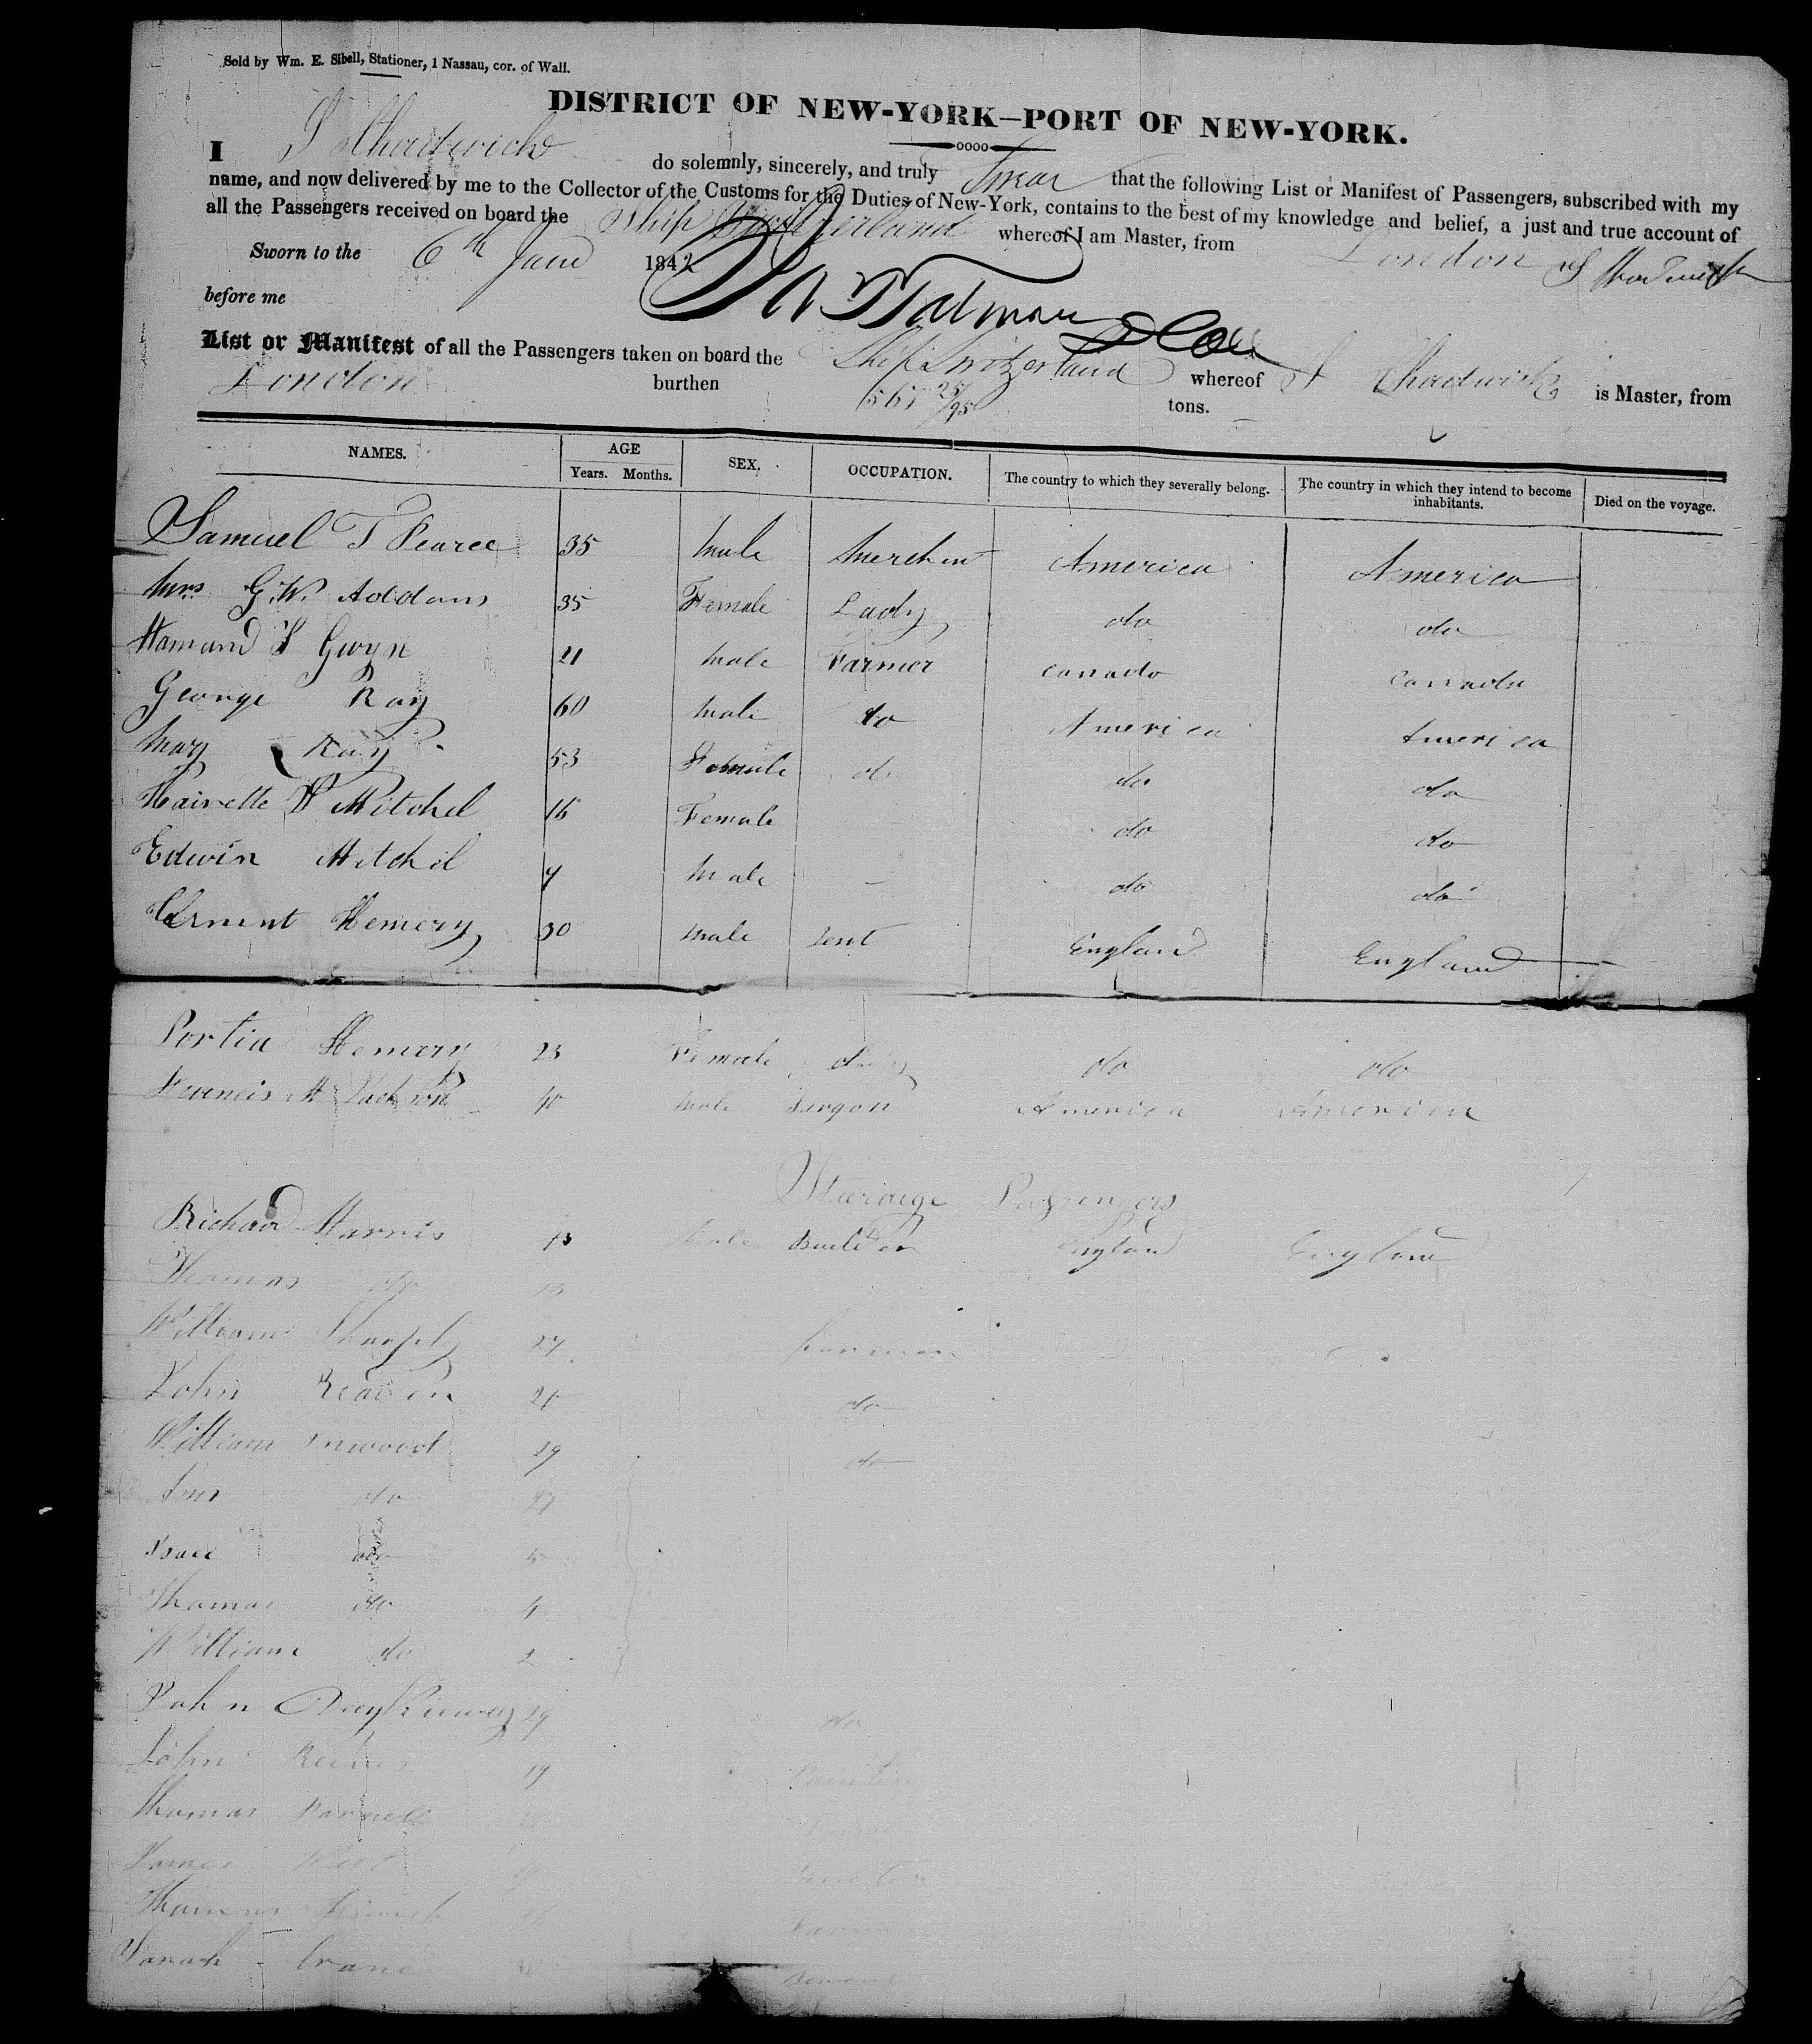 Sold by Wm. E. Sibell, Stationer, 1 Nassau, cor. of Wall.
DISTRICT OF NEW-YORK—PORT OF NEW-YORK.
I S Chadwick do solemnly, sincerely, and truly Swear that the following List or Manifest of Passengers, subscribed with my
name, and now delivered by me to the Collector of the Customs for the Duties of New-York, contains to the best of my knowledge and belief, a just and true account of
all the Passengers received on board the Ship Switzerland whereof I am Master, from London
Sworn to the 6th June 1842 S Chadwick
before me
List or Manifest of all the Passengers taken on board the Ship Switzerland whereof S Chadwick is Master, from
London burthen tons.
NAMES. AGE Years. Months. SEX. OCCUPATION. The country to which they severally belong. The country in which they intend to become inhabitants. Died on the voyage.
Samuel T Pearce 35 Male Merchent America America
Mrs G.W. Addams 35 Female Lady do do
Hamand Gwyn 21 Male Farmer Canada Canada
George Ray 60 Male do America America
Mary Ray 53 Female do do do
Mitchel 16 Female do do
Edwin Mitchil 7 Male - do do
Clement Hemery 30 Male Gent England England
Portia Hemery 23 Female do do
Francis M Jackson 40 Male Surgon America America
Steerage Passengers
Richard Harris Male Builder England England
Thomas do
William Sharply 27 Farmer
John 26 do
William Inwood 29 do
Ann do 27
Isaac do 5
Thomas do 4
William do 2
John 29 do
John 19 Painter
Thomas Parnell Farmer
James West 19
Thomas Farmer
Sarah Crane